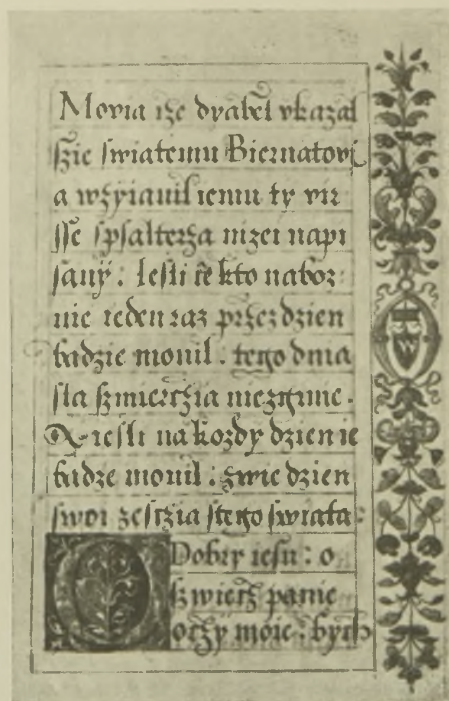 Movia ize dyabel vkazal
szie swiatemu Biernatow
a wzyiauil iemu ty vir
sse spsalterza nizei napi
sany : Iesli ie kto naboz
nie ieden raz przez dzien
badzie mouil . tego dnia
sla szmierzia niezginie .
A iesli na kozdy dzien ie
badze mouil : zwie dzien
swoi zescia stego swiata :
O Dobry iesu : o
szwierz panie
oczy moie : bych